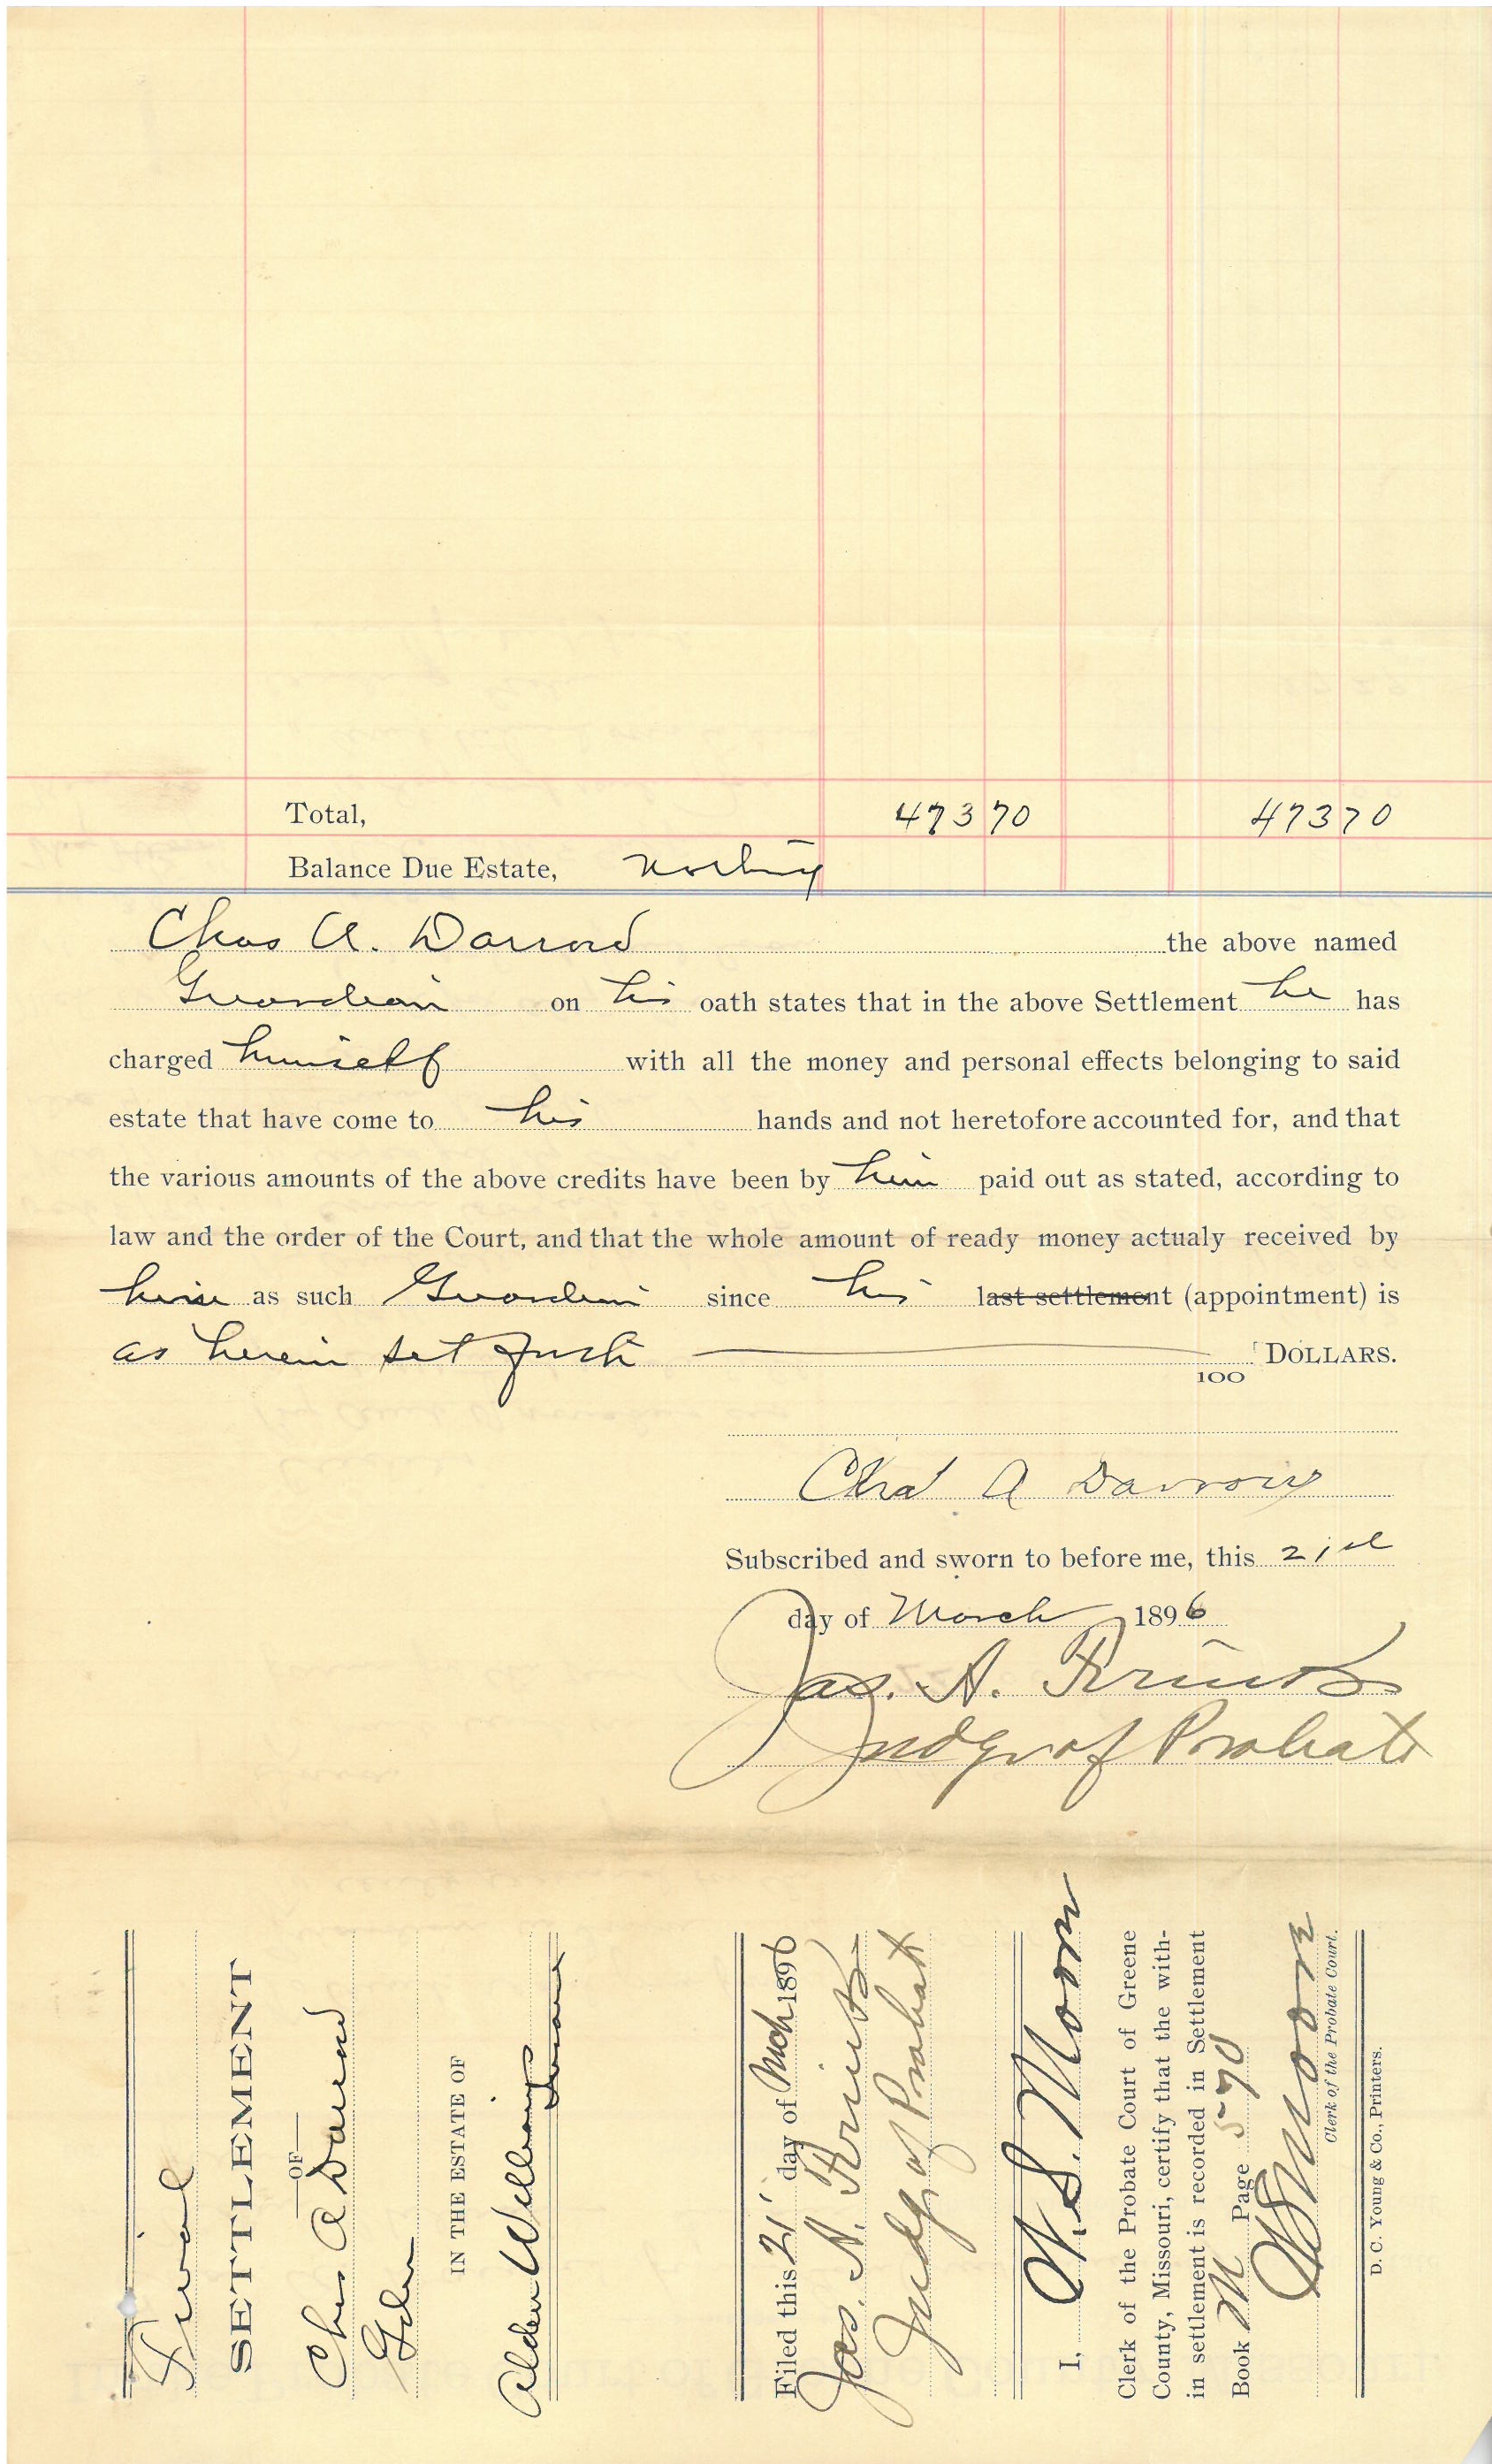 Total, 473 70 473 70
Balance Due Estate, Nothing
Chas A. Darrow the above named
Guardian on his oath states that in the above Settlement he has
charged himself with all the money and personal effects belonging to said
estate that have come to his hands and not heretofore accounted for, and that
the various amounts of the above credits have been by him paid out as stated, according to
law and the order of the Court, and that the whole amount of ready money actualy received by
him as such Guardian since his last settlement (appointment) is
as herein set forth DOLLARS.
100
Chas A Darrow
Subscribed and sworn to before me, this 21st
day of March 1896
Jas. A.
Judge of Probate
Final
SETTLEMENT
OF
Chas A Darrow
Gdn
IN THE ESTATE OF
Alden Williams
Insane
Filed this 21' day of Mch 1896
Jas. A.
Judge of Probate
I, W. S. Moon
Clerk of the Probate Court of Greene
County, Missouri, certify that the with-
in settlement is recorded in Settlement
Book M Page 570
WSMoon
Clerk of the Probate Court.
D. C. Young & Co., Printers.